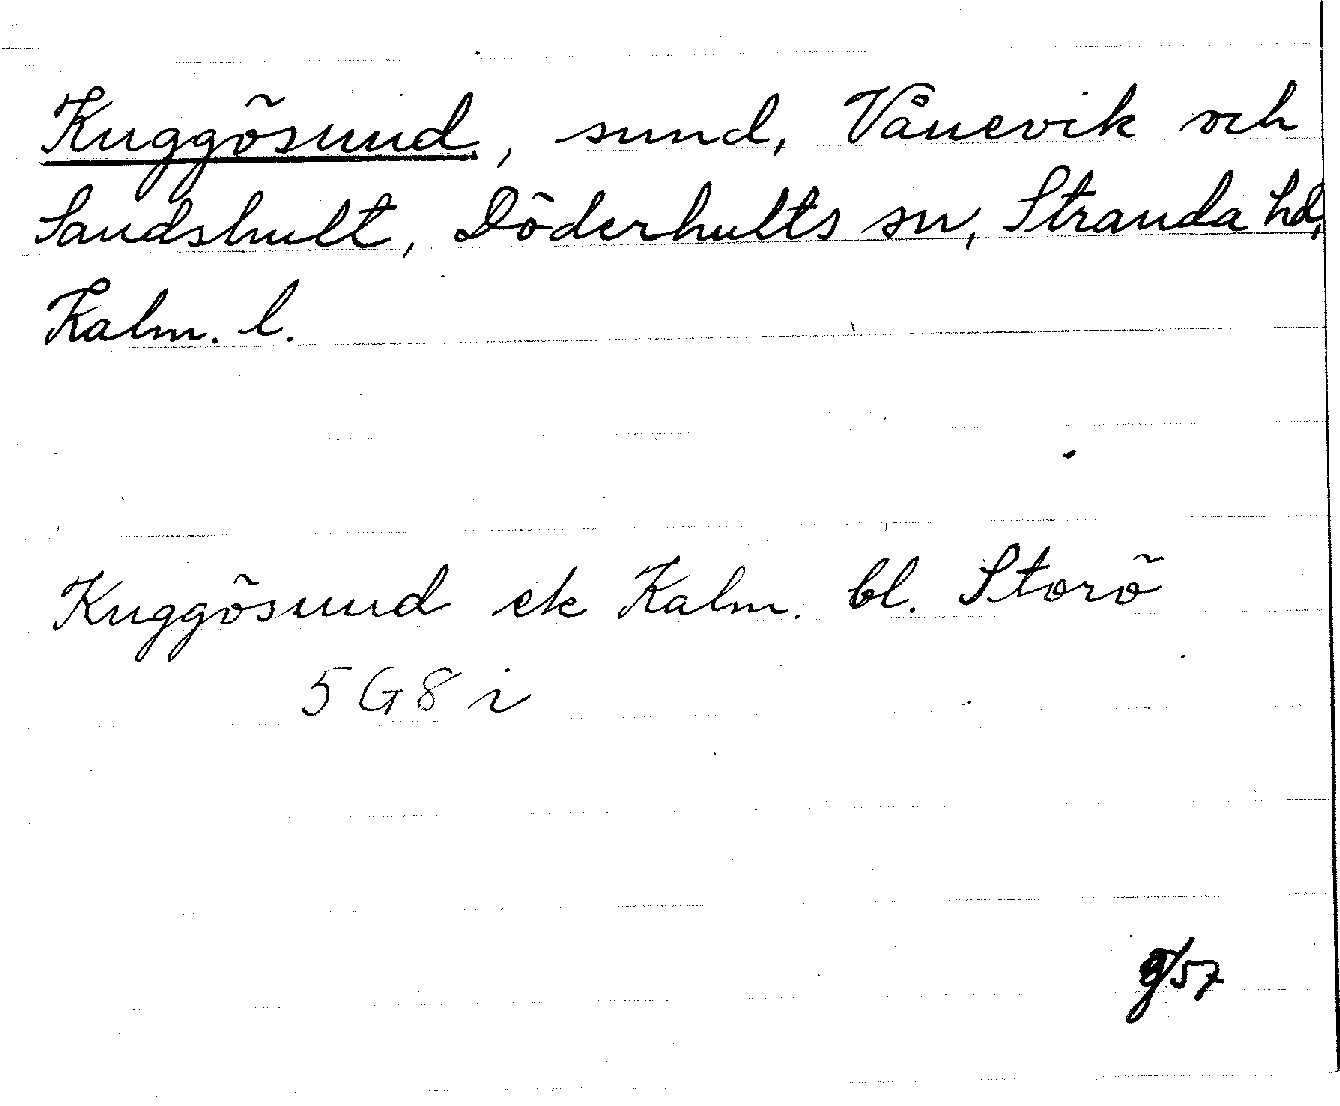 Kuggösund, sund, Vånevik och
Sandshult, Döderhults sn, Stranda hd,
Kalm. l.
Kuggösund ek Kalm. bl. Storö
5G8i
9/57